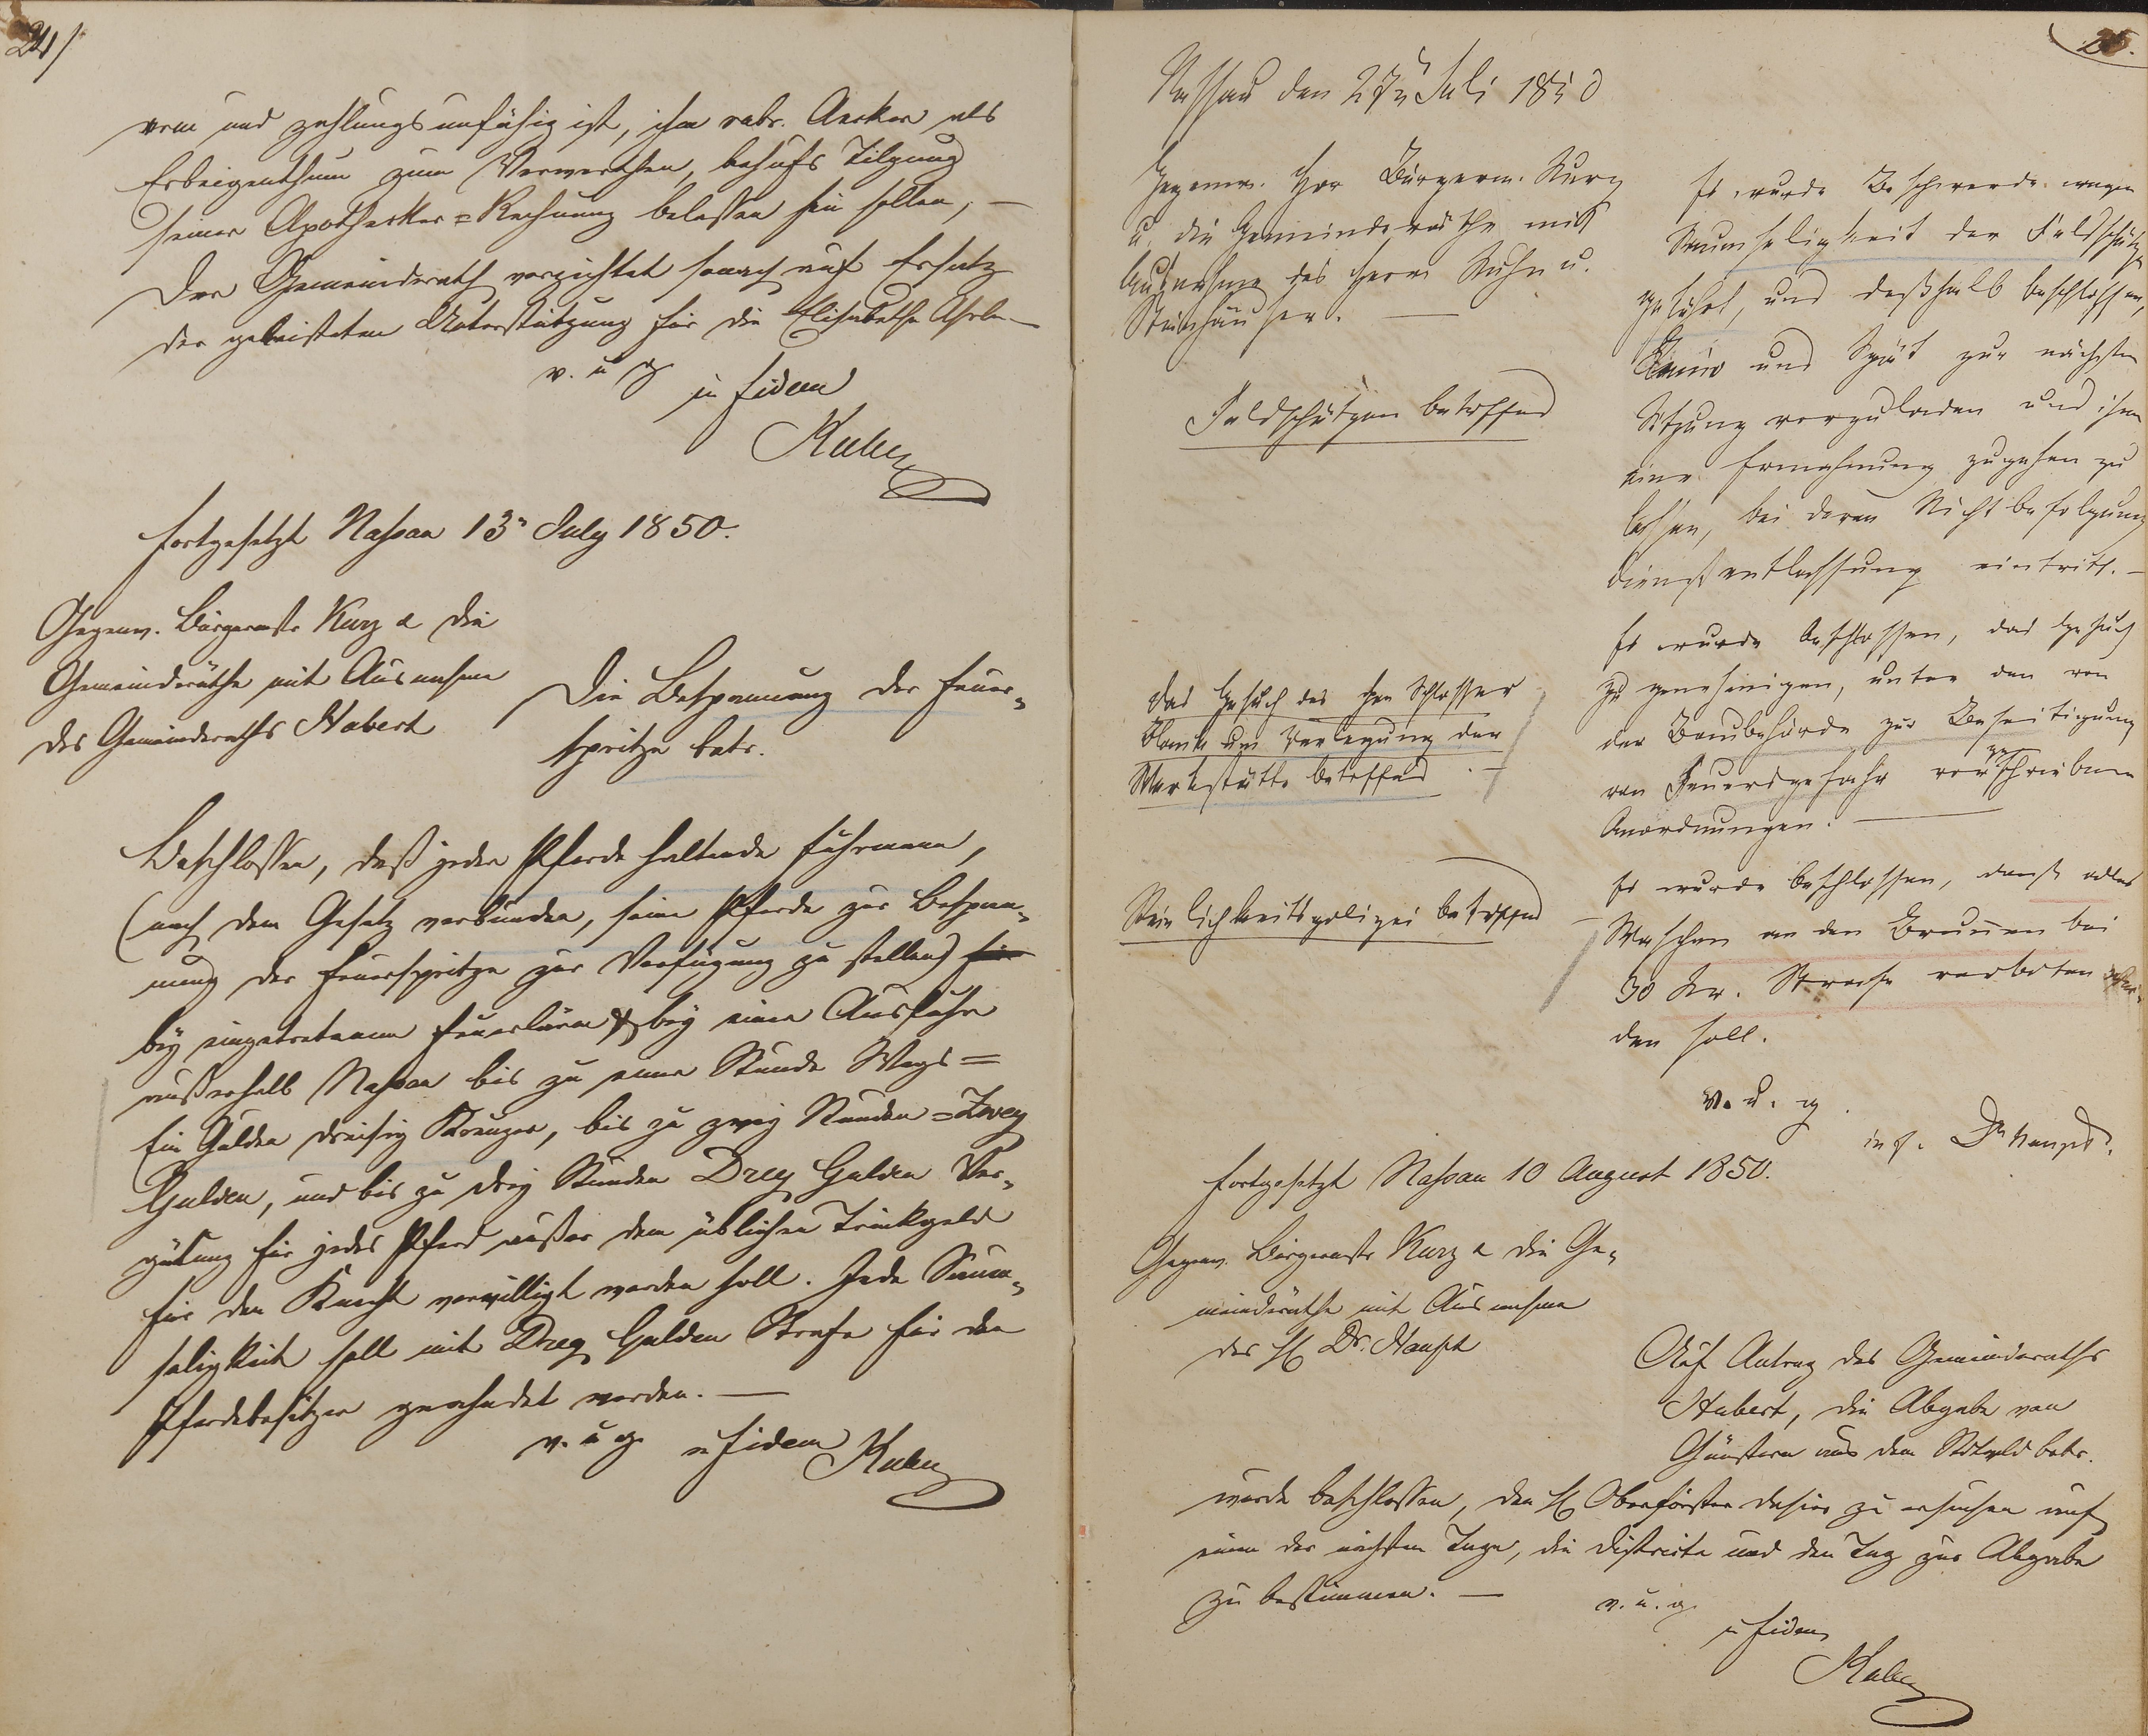 24/
arm und zahlungsunfähig ist, ihm rubr. Aecker als
Erbeigenthum zum Verwerthen, behufs Tilgung
seiner Apotheker=Rechnung belassen sein sollen, —
Der Gemeinderath verzichtet sonach auf Ersatz
der geleisteten Unterstützung für die Elisabetha
v. u g
in fidem
fortgesetzt Nassau 13n July 1850.
Gegenw. Bürgermstr Kurz & die
Gemeindräthe mit Ausnahme
des Gemeinderaths Habert
Die Bespannung der Feuer-
spritze betr.
Beschlossen, daß jeder Pferde haltende Fuhrmann,
(nach dem Gesetz verbunden, seine Pferde zur Bespan-
nung der Feuerspritze zur Verfügung zu stellen)
bey eingetretenem Feuerlärm & bey einer Ausfuhr
außerhalb Nassau bis zu einer Stunde Wegs =
Ein Gulden dreißig Kreuzer, bis zu zwey Stunden = Zwey
Gulden, und bis zu drey Stunden Drey Gulden Ver-
gütung für jedes Pferd außer dem üblichen Trinkgeld
für den Knecht verwilligt werden soll. Jede Saum-
seligkeit soll mit Drey Gulden Strafe für den
Pferdebesitzer geahndet werden. —
v. u g. in fidem
25.
Nassau den 27n Juli 1850
Gegenw. Herr Bürgerm. Kurz
u. die Gemeinderäthe mit
Ausnahme des Herrn Kuhn u.
Steinhäuser. —
Feldschützen betreffend
Es wurde Beschwerde wegen
Saumseligkeit der Feldschützen
geführt, und deßhalb beschlossen,
und Spät zur nächsten
Sitzung vorzuladen und ihnen
eine Ermahnung zugehen zu
lassen, bei deren Nichtbefolgung
Dienstentlassung eintritt. —
Das Gesuch des Hrn Schlosser
Blank um Verlegung der
Werkstätte betreffend. —
Es wurde beschlossen, das Gesuch
zu genehmigen, unter den von
der Baubehörde zur Beseitigung
von Feuersgefahr vorgeschriebenen
Anordnungen. —
Reinlichkeitspolizei betreffend
Es wurde beschlossen, daß alles
Waschen an den Brunnen bei
30 Kr. Strafe verboten wer-
den soll.
v. u. g.
in f. Dr Haupt.
fortgesetzt Nassau 10 August 1850.
Gegenw. Bürgermstr Kurz & die Ge-
meinderäthe mit Ausnahme
des H Dr. Haupt
Auf Antrag des Gemeinderaths
Habert, die Abgabe von
Günstern aus dem Stdtwld betr.
wurde beschlossen, den H Oberförster dahier zu ersuchen auf
einen der nächsten Tage, die Districte und den Tag zur Abgabe
zu bestimmen. —
v. u. g.
in fidem